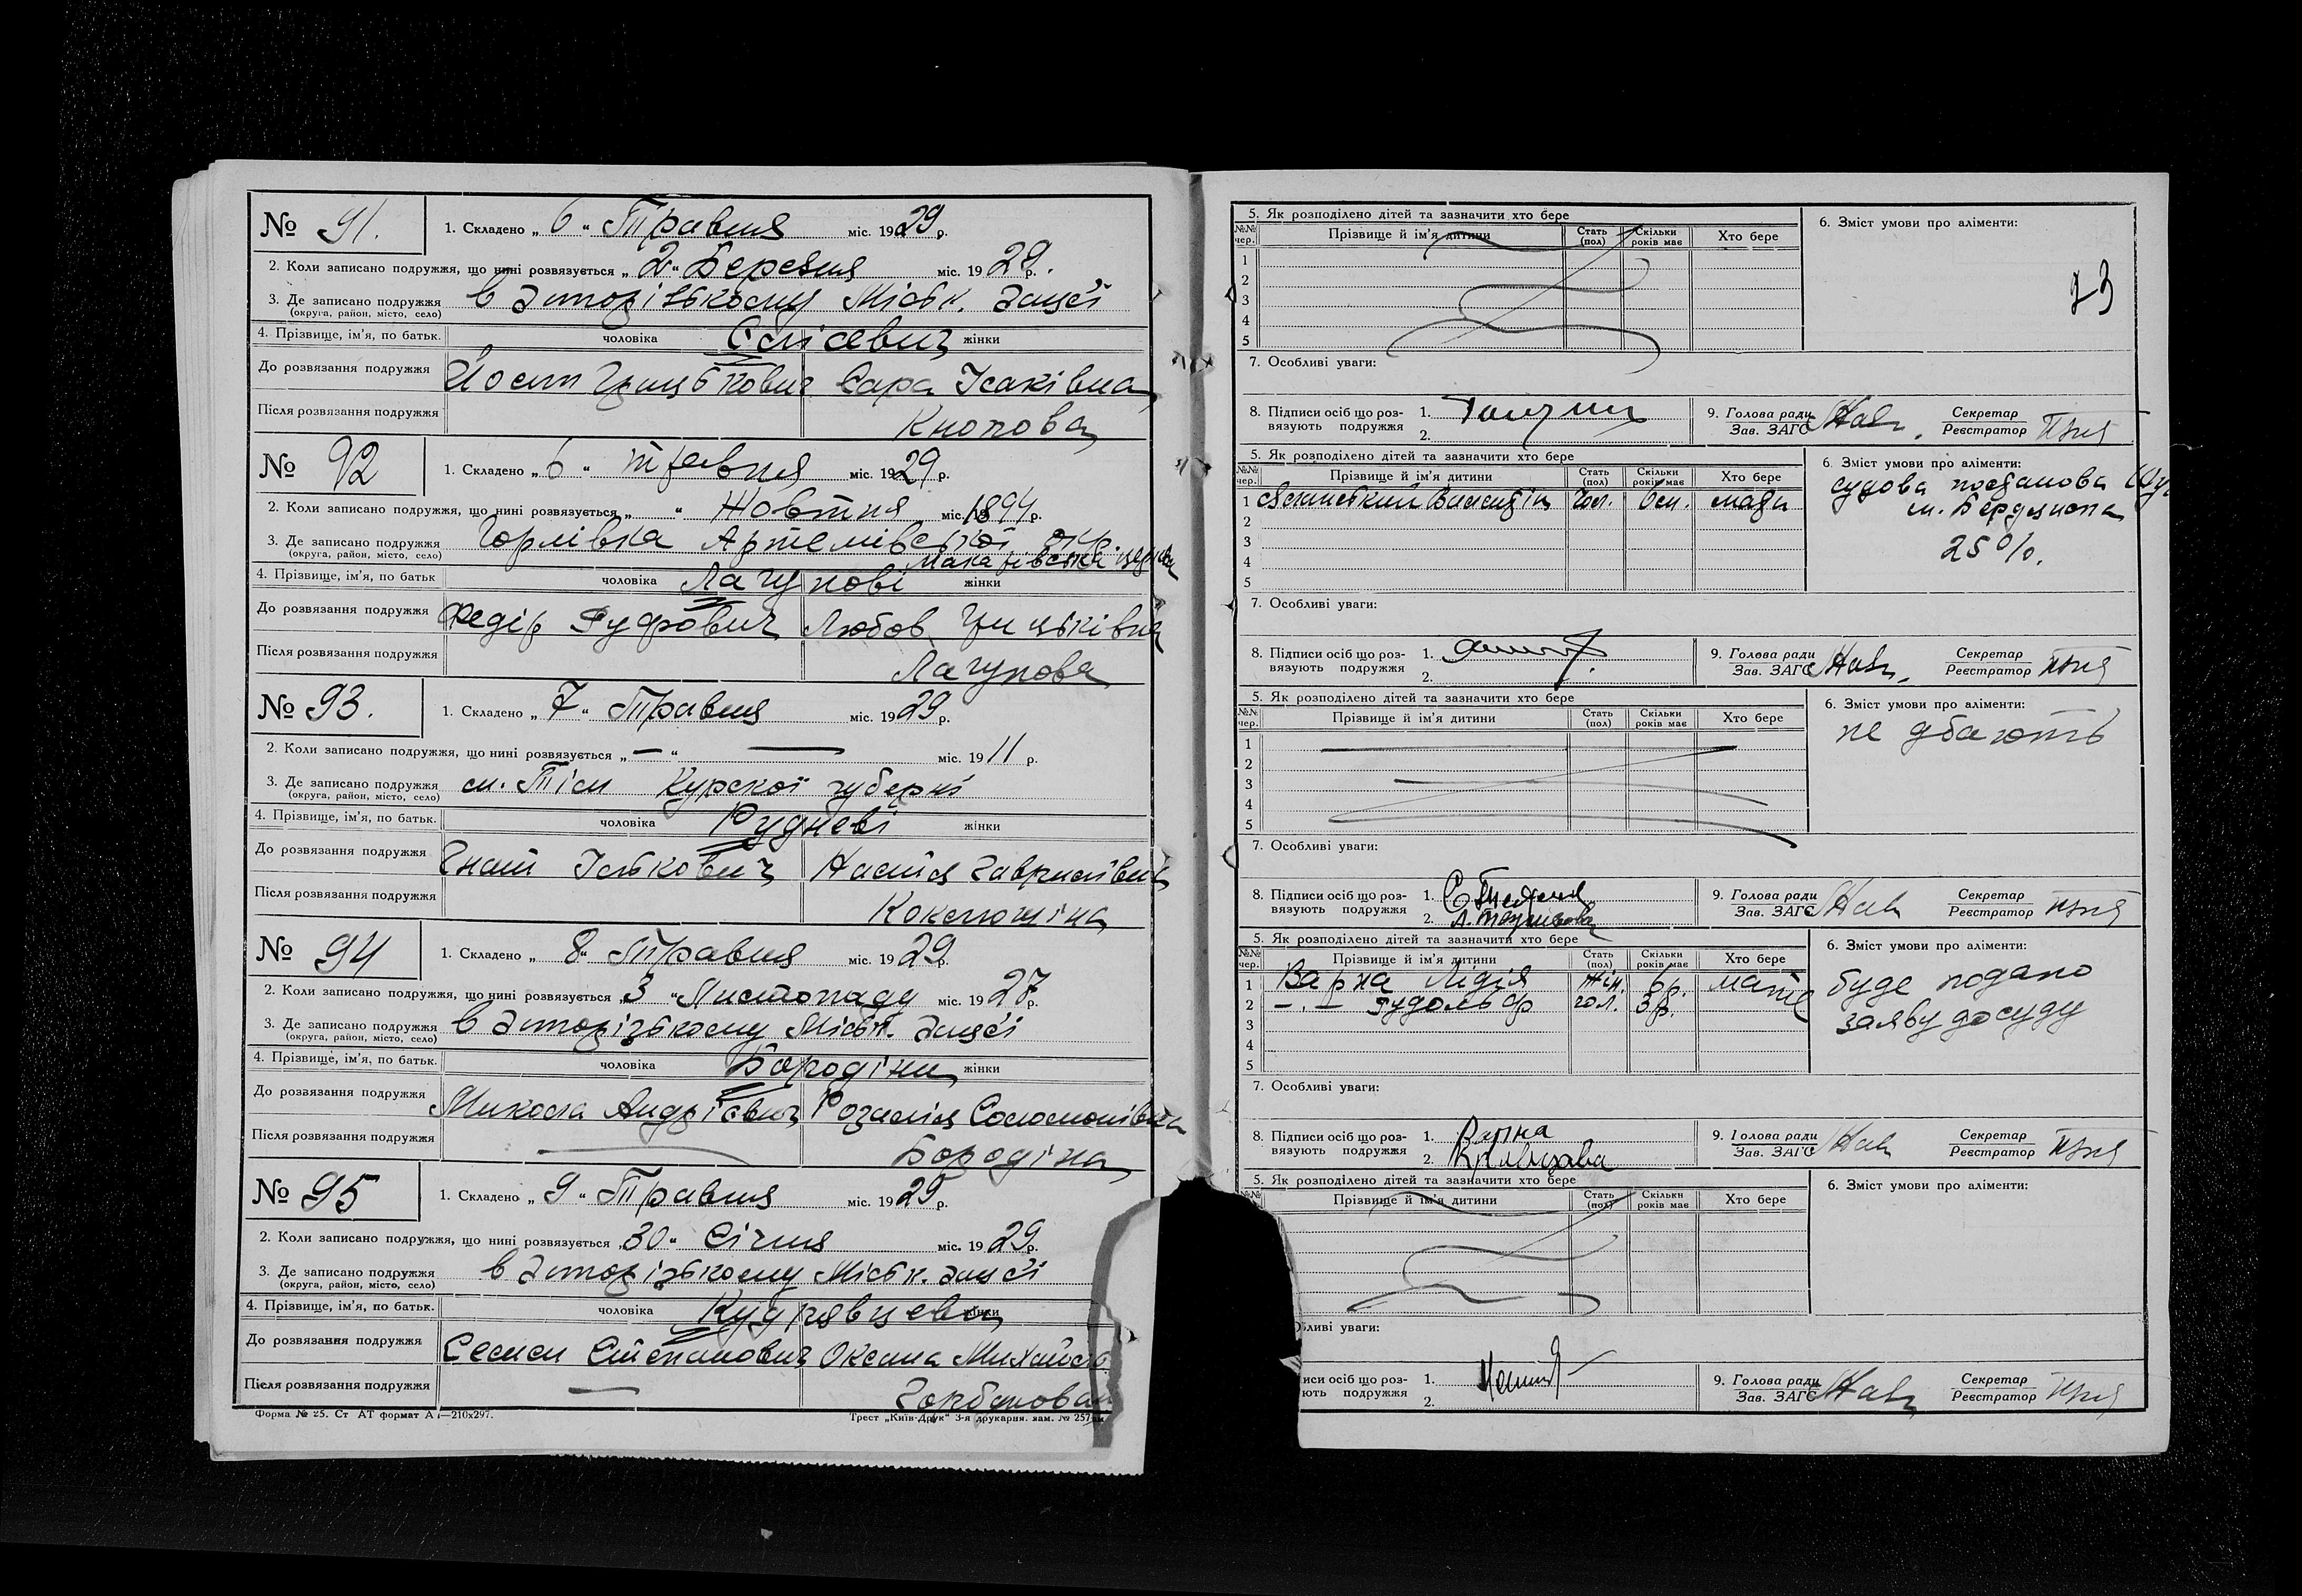 № 91. 1. Складено „ 6 “ Травня міс. 1929 р.
2. Коли записано подружжя, що нині розвязується „ 2 “ Березня міс. 1929 р.
3. Де записано подружжя в Запорізькому Міськ. Загсі
(округа, район, місто, село)
4. Прізвище, ім'я, по батьк. чоловіка жінки
До розвязання подружжя Сара Ісаківна
Після розвязання подружжя Кнопова
№ 92 1. Складено „ 6 “ травня міс. 1929 р.
2. Коли записано подружжя, що нині розвязується „ “ Жовтня міс. 1894 р.
3. Де записано подружжя Горлівка Артемівської окр.
(округа, район, місто, село) Макарівська церква
4. Прізвище, ім'я, по батьк чоловіка Лагунові жінки
До розвязання подружжя Федір Любов
Після розвязання подружжя Лагунова
№ 93. 1. Складено „ 7 “ Травня міс. 1929 р.
2. Коли записано подружжя, що нині розвязується „ — “ — міс. 1911 р.
3. Де записано подружжя м. Тім Курської губерні
(округа, район, місто, село)
4. Прізвище, ім'я, по батьк. чоловіка Руднєві жінки
До розвязання подружжя Гнат Настя Гаврилівна
Після розвязання подружжя
№ 94 1. Складено „ 8 “ Травня міс. 1929 р.
2. Коли записано подружжя, що нині розвязується „ 3 “ Листопаду міс. 1927 р.
3. Де записано подружжя в Запорізькому Міськ. Загсі
(округа, район, місто, село)
4. Прізвище, ім'я, по батьк. чоловіка Бородіни жінки
До розвязання подружжя Микола Андрієвич Розалія Соломонівна
Після розвязання подружжя — Бородіна
№ 95 1. Складено „ 9 “ Травня міс. 1929 р.
2. Коли записано подружжя, що нині розвязується „ 30 “ Січня міс. 1929 р.
3. Де записано подружжя в Запорізькому Міськ. Загсі
(округа, район, місто, село)
4. Прізвище, ім'я, по батьк. чоловіка Кудрявцеви жінки
До розвязання подружжя Семен Степанович Оксана
Після розвязання подружжя —
Форма № 25. Ст АТ формат А—210х297. Трест „Київ-Друк“ 3-я друкарня. зам. № 257
5. Як розподілено дітей та зазначити хто бере 6. Зміст умови про аліменти:
№№ чер. Прізвище й ім'я дитини Стать (пол) Скільки років має Хто бере
1
2
3
4
5
7. Особливі уваги:
8. Підписи осіб що розвязують подружжя 1. 9. Голова ради Секретар
2. Зав. ЗАГС Реєстратор
5. Як розподілено дітей та зазначити хто бере 6. Зміст умови про аліменти:
№№ чер. Прізвище й ім'я дитини Стать (пол) Скільки років має Хто бере судова постанова
1 чол. мати м. Бердянська
2 25%.
3
4
5
7. Особливі уваги:
8. Підписи осіб що розвязують подружжя 1. 9. Голова ради Секретар
2. Зав. ЗАГС Реєстратор
5. Як розподілено дітей та зазначити хто бере 6. Зміст умови про аліменти:
№№ чер. Прізвище й ім'я дитини Стать (пол) Скільки років має Хто бере не дбають
1
2
3
4
5
7. Особливі уваги:
8. Підписи осіб що розвязують подружжя 1. 9. Голова ради Секретар
2. Зав. ЗАГС Реєстратор
5. Як розподілено дітей та зазначити хто бере 6. Зміст умови про аліменти:
№№ чер. Прізвище й ім'я дитини Стать (пол) Скільки років має Хто бере
1 Варна Лідія жін. 6р. мати буде подано
2 —.— Рудольф чол. 3р. заяву до суду
3
4
5
7. Особливі уваги:
8. Підписи осіб що розвязують подружжя 1. Варна 9. Голова ради Секретар
2. Зав. ЗАГС Реєстратор
5. Як розподілено дітей та зазначити хто бере 6. Зміст умови про аліменти:
Прізвище й ім'я дитини Стать (пол) Скільки років має Хто бере
уваги:
осіб що роз- 1. 9. Голова ради Секретар
подружжя 2. Зав. ЗАГС Реєстратор